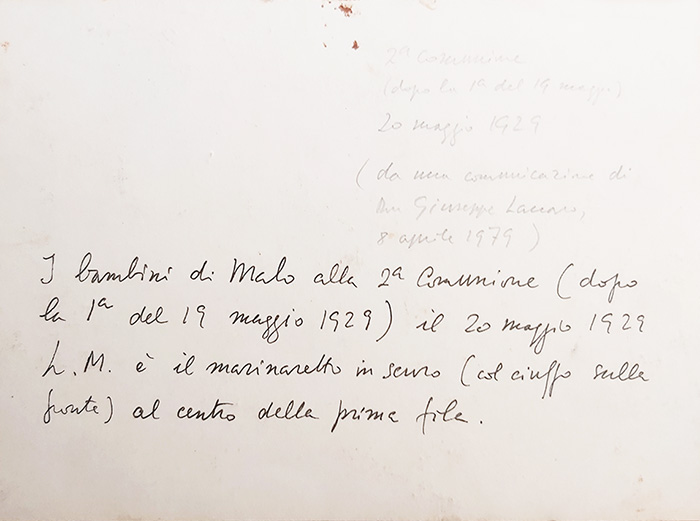 2ª Comunione
(dopo la 1ª del 19 maggio)
20 maggio 1929
(da una comunicazione di
Don Giuseppe
8 aprile 1979)
I bambini di Malo alla 2ª Comunione (dopo
la 1ª del 19 maggio 1929) il 20 maggio 1929
L. M. è il marinaretto in scuro (col ciuffo sulla
fronte) al centro della prima fila.